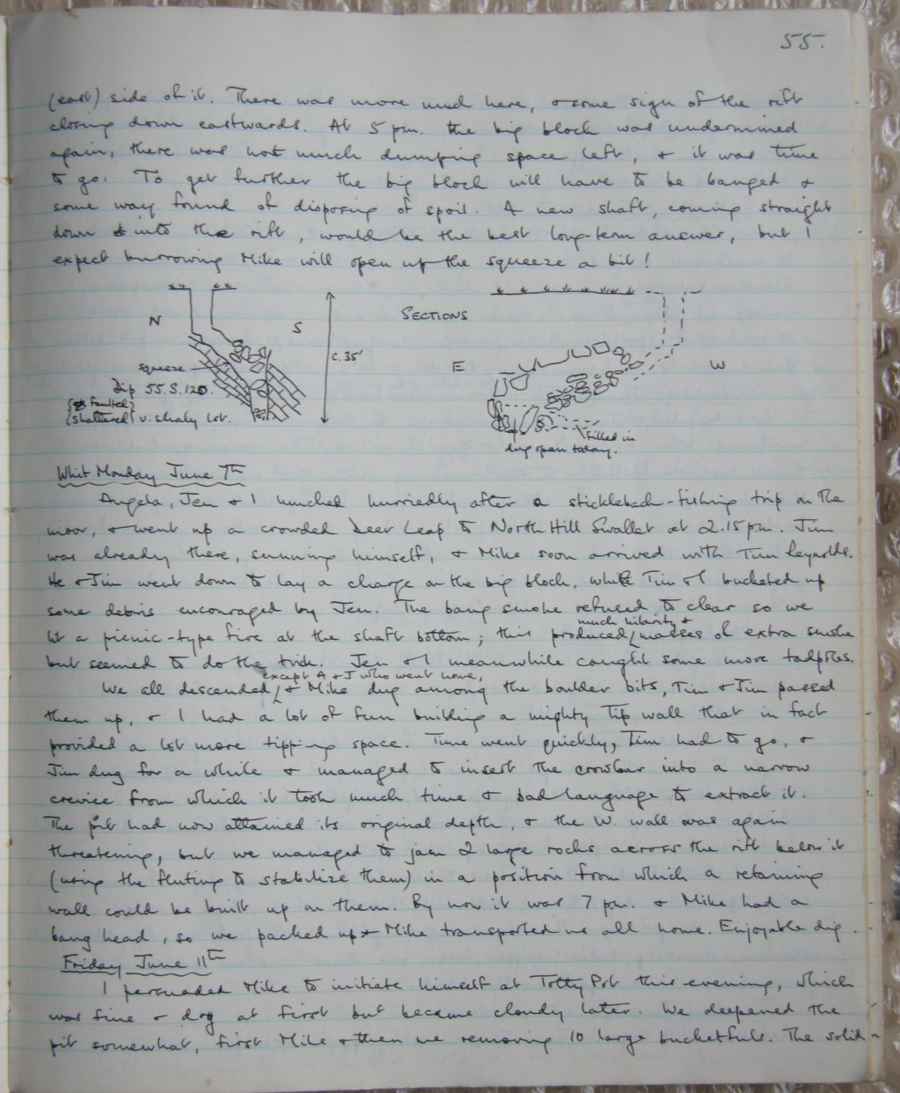 55.
(east) side of it. There was more mud here, & some sign of the rift
closing down eastwards. At 5 pm. the big block was undermined
again, there was not much dumping space left, & it was time
to go. To get further the big block will have to be banged &
some way found of disposing of spoil. A new shaft, coming straight
down into the rift, would be the best long-term answer, but I
expect burrowing Mike will open up the squeeze a bit!
N
S
c. 35'
squeeze
dip 55. S. 120.
faulted
shattered
v. shaly lst.
SECTIONS
E
W
filled in
dug open today.
Whit Monday June 7th
Angela, Jen & I lunched hurriedly after a stickleback-fishing trip on the
moor, & went up a crowded Deer Leap to North Hill Swallet at 2.15 pm. Jim
was already there, sunning himself, & Mike soon arrived with Tim Reynolds.
He & Jim went down to lay a charge on the big block, while Tim & I bucketed up
some debris encouraged by Jen. The bang smoke refused to clear so we
lit a picnic-type fire at the shaft bottom; this produced much hilarity & masses of extra smoke
but seemed to do the trick. Jen & I meanwhile caught some more tadpoles.
We all descended except A & J who went home, & Mike dug among the boulder bits, Tim & Jim passed
them up, & I had a lot of fun building a mighty tip wall that in fact
provided a lot more tipping space. Time went quickly, Tim had to go, &
Jim dug for a while & managed to insert the crowbar into a narrow
crevice from which it took much time & bad language to extract it.
The pit had now attained its original depth, & the W. wall was again
threatening, but we managed to jam 2 large rocks across the rift below it
(using the fluting to stabilize them) in a position from which a retaining
wall could be built up on them. By now it was 7 pm. & Mike had a
bang head, so we packed up & Mike transported us all home. Enjoyable dig.
Friday June 11th
I persuaded Mike to initiate himself at Totty Pot this evening, which
was fine & dry at first but became cloudy later. We deepened the
pit somewhat, first Mike & then me removing 10 large bucketfuls. The solid